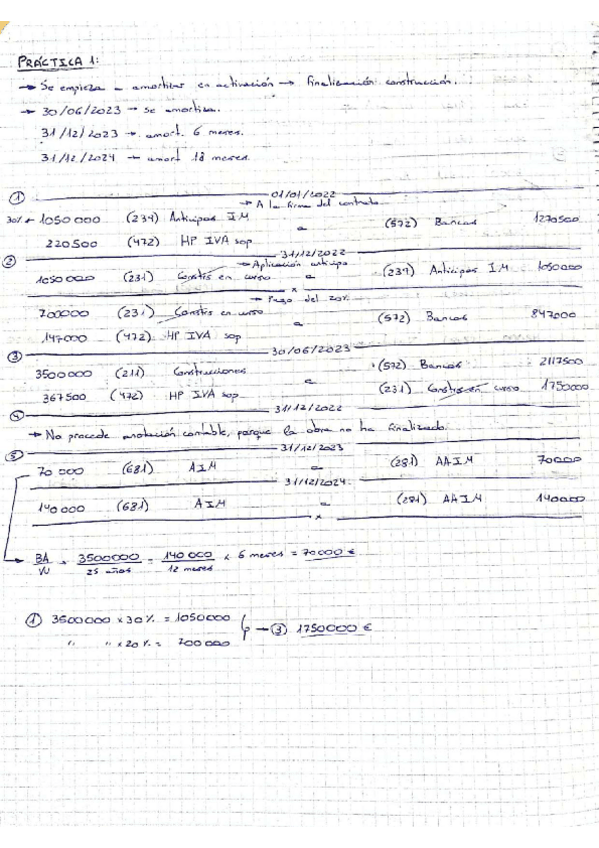 PRÁCTICA 1:
→ Se empieza a amortizar en activación → finalización construcción.
→ 30/06/2023 → se amortiza.
31/12/2023 → amort. 6 meses.
31/12/2024 → amort 18 meses.
① 01/01/2022
→ A la firma del contrato
30% ← 1050000 (239) Anticipos I.M a (572) Bancos 1270500
220500 (472) HP IVA sop
② 31/12/2022
→ Aplicación anticipo
1050000 (231) Constrs en curso a (239) Anticipos I.M 1050000
x
→ Pago del 20%
700000 (231) Constrs en curso a (572) Bancos 847000
147000 (472) HP IVA sop
③ 30/06/2023
3500000 (211) Construcciones a (572) Bancos 2117500
367500 (472) HP IVA sop (231) Constrs en curso 1750000
④ 31/12/2022
→ No procede anotación contable, porque la obra no ha finalizado.
⑤ 31/12/2023
70 000 (681) AIM a (281) AAIM 70000
31/12/2024
140 000 (681) AIM a (281) AAIM 140000
x
BA/VU = 3500000/25 años = 140 000/12 meses x 6 meses = 70000 €
① 3500000 x 30 % = 1050000
" " x 20 % = 700000 → ③ 1750000 €